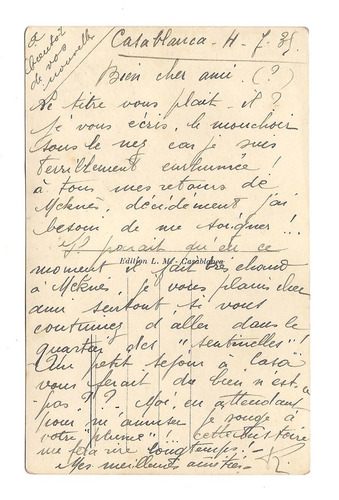 à
bientôt
de vos
nouvelles
Casablanca - 4 - 7. 35
Bien cher ami. (?)
Ce titre vous plait-il?
Je vous écris, le mouchoir
sous le nez car je suis
terriblement enrhumée!
à tous mes retours de
Meknès, décidément j'ai
besoin de me soigner!..
Il parait qu'en ce
Edition L. M. - Casablanca
moment il fait très chaud
à Meknès, je vous plains cher
ami surtout, si vous
continuez d'aller dans le
quartier des "sentinelles"!
Un petit séjour à Casa
vous ferait du bien n'est-ce
pas?? Moi, en attendant
pour m'amuser je songe à
votre "plume" cette histoire
me fera rire longtemps!
Mes meilleures amitiés
R.